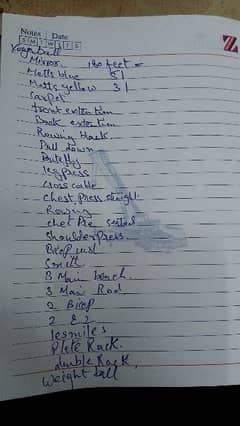 Notes Date
S M T W T F S
Yoga ball
Mirror 180 feet =
Matts blue 51
Matts yellow 31
Carpet
front extention
Back extention
Rowing black
Pull down
Butterfly
leg press
cross cable
chest press straight
Rowing
shoulder press
Bicep curl
Smith
3 Main bench
3 Main Rod
2 Bicep
2 E Z
lesmiles
Plate Rack.
dumble Rack,
Weight ball